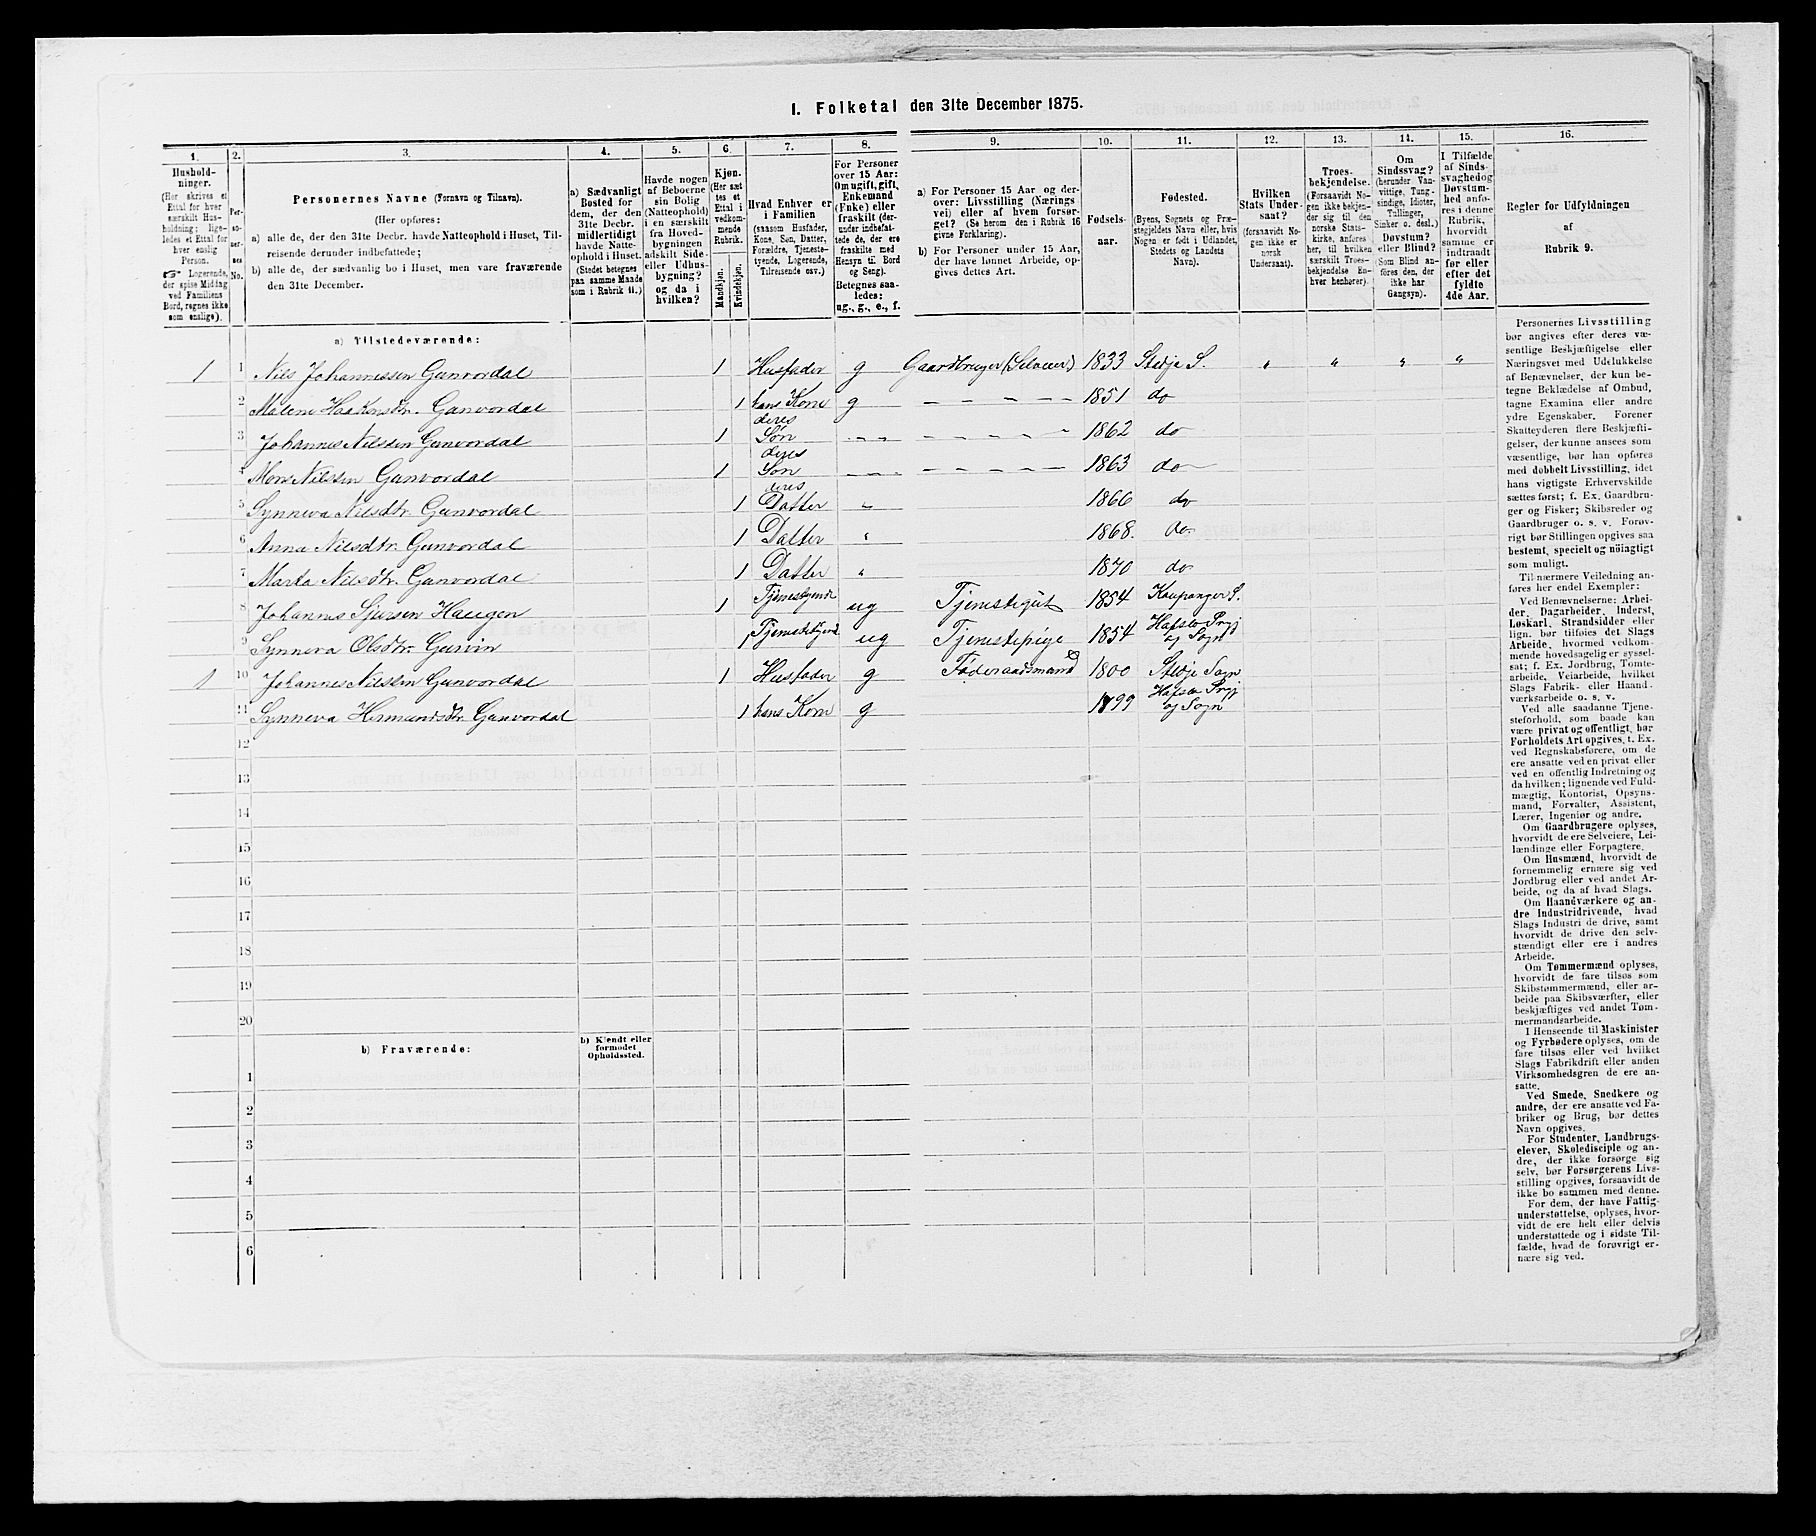 1. Folketal den 31te December 1875.
1. 2. 3. 4. 5. 6. 7. 8. 9. 10. 11. 12. 13. 14. 15. 16.
Husholdninger. (Her skrives et Ettal for hver særskilt Husholdning; ligeledes et Ettal for hver enslig Person. ☞ Logerende, der spise Middag ved Familiens Bord, regnes ikke som enslige).
Personernes No.
Personernes Navne (Fornavn og Tilnavn).
(Her opføres:
a) alle de, der den 31te Decbr. havde Natteophold i Huset, Tilreisende derunder indbefattede;
b) alle de, der sædvanlig bo i Huset, men vare fraværende den 31te December.
a) Sædvanligt Bosted for dem, der den 31te Decbr. midlertidigt havde Natteophold i Huset. (Stedet betegnes paa samme Maade som i Rubrik 11.)
Havde nogen af Beboerne sin Bolig (Natteophold) i en særskilt fra Hovedbygningen adskilt Side- eller Udhusbygning? og da i hvilken?
Kjøn. (Her sættes et Ettal i vedkommende Rubrik. Mandkjøn. Kvindekjøn.
Hvad Enhver er i Familien (saasom Husfader, Kone, Søn, Datter, Forældre, Tjenestetyende, Logerende, Tilreisende osv.)
For Personer over 15 Aar: Om ugift, gift, Enkemand (Enke) eller fraskilt (derunder indbefattede de, der ere fraskilte med Hensyn til Bord og Seng). Betegnes saaledes: ug., g., e., f.
a) For Personer 15 Aar og derover: Livsstilling (Næringsvei) eller af hvem forsørget? (Se herom den i Rubrik 16 givne Forklaring).
b) For Personer under 15 Aar, der have lønnet Arbeide, opgives dettes Art.
Fødselsaar.
Fødested. (Byens, Sognets og Præstegjeldets Navn eller, hvis Nogen er født i Udlandet, Stedets og Landets Navn).
Hvilken Stats Undersaat? (forsaavidt Nogen ikke er norsk Undersaat).
Troesbekjendelse. (Forsaavidt Nogen ikke bekjender sig til den norske Statskirke, anføres her, til hvilken særskilt Troesbekjendelse Enhver henhører).
Om Sindssvag? (herunder Vanvittige, Tungsindige, Idioter, Tullinger, Sinker o. desl.) Døvstum? eller Blind? (Som Blind anføres den, der ikke har Gangsyn).
I Tilfælde af Sindssvaghed og Døvstumhed anføres i denne Rubrik, hvorvidt samme er indtraadt før eller efter det fyldte 4de Aar.
Regler for Udfyldningen af Rubrik 9.
a) Tilstedeværende:
1 1 Nils Johannessen Gunvordal 1 Husfader g Gaardbruger (Selveier) 1833 Stedje S. " " " "
2 Malene Haakensdtr. Gunvordal 1 hans Kone g — — — — — 1851 do
3 Johannes Nilssen Gunvordal 1 deres Søn 1862 do
4 Mons Nilssen Gunvordal 1 deres Søn — — — — — 1863 do
5 Synneva Nilsdtr. Gunvordal 1 deres Datter " 1866 do
6 Anna Nilsdtr. Gunvordal 1 Datter " 1868. do
7 Marta Nilsdtr. Gunvordal 1 Datter " 1870 do
8 Johannes Sjursen Haugen 1 Tjenestyende ug Tjenestegut 1854 Kaupanger S.
9 Synneva Olsdtr. 1 Tjenestetyende ug Tjenestepige 1854 Hafslo Prgj og Sogn
1 10 Johannes Nilssen Gunvordal 1 Husfader g Føderaadsmand 1800 Stedje Sogn
11 Synneva Hermundsdtr. Gunvordal 1 hans Kone g 1799 Hafslo Prgj og Sogn
12
13
14
15
16
17
18
19
20
b) Fraværende:
b) Kjendt eller formodet Opholdssted.
1
2
3
4
5
6
Personernes Livsstilling
bør angives efter deres væ-
sentlige Beskjæftigelse eller
Næringsvei med Udelukkelse
af Benævnelser, der kun be-
tegne Beklædelse af Ombud,
tagne Examina eller andre
ydre Egenskaber. Forener
Skatteyderen flere Beskjæfti-
gelser, der kunne ansees som
væsentlige, bør han opføres
med dobbelt Livsstilling, idet
hans vigtigste Erhvervskilde
sættes først; f. Ex. Gaardbru-
ger og Fisker; Skibsreder og
Gaardbruger o. s. v. Forøv-
rigt bør Stillingen opgives saa
bestemt, specielt og nöiagtigt
som muligt.
Til nærmere Veiledning an-
føres her endel Exempler:
Ved Benævnelserne: Arbei-
der, Dagarbeider, Inderst,
Løskarl, Strandsidder eller
lign. bør tilføies det Slags
Arbeide, hvormed vedkom-
mende hovedsagelig er syssel-
sat; f. Ex. Jordbrug, Tomte-
arbeide, Veiarbeide, hvilket
Slags Fabrik- eller Haand-
værksarbeide o. s. v.
Ved alle saadanne Tjene-
steforhold, som baade kan
være privat og offentligt, bør
Forholdets Art opgives, t. Ex.
ved Regnskabsførere, om de
ere ansatte ved en privat eller
ved en offentlig Indretning og
da hvilken; lignende ved Fuld-
mægtig, Kontorist, Opsyns-
mand, Forvalter, Assistent,
Lærer, Ingeniør og andre.
Om Gaardbrugere oplyses,
hvorvidt de ere Selveiere, Lei-
lændinge eller Forpagtere.
Om Husmænd, hvorvidt de
fornemmelig ernære sig ved
Jordbrug eller ved andet Ar-
beide, og da af hvad Slags.
Om Haandværkere og an-
dre Industridrivende, hvad
Slags Industri de drive, samt
hvorvidt de drive den selv-
stændigt eller ere i andres
Arbeide.
Om Tømmermænd oplyses,
hvorvidt de fare tilsøs som
Skibstømmermænd, eller ar-
beide paa Skibsværfter, eller
beskjæftiges ved andet Tøm-
mermandsarbeide.
I Henseende til Maskinister
og Fyrbødere oplyses, om de
fare tilsøs eller ved hvilket
Slags Fabrikdrift eller anden
Virksomhedsgren de ere an-
satte.
Ved Smede, Snedkere og
andre, der ere ansatte ved Fa-
briker og Brug, bør dettes
Navn opgives.
For Studenter, Landbrugs-
elever, Skoledisciple og an-
dre, der ikke forsørge sig
selv, bør Forsørgerens Livs-
stilling opgives, forsaavidt de
ikke bo sammen med denne.
For dem, der have Fattig-
understøttelse, oplyses, hvor-
vidt de ere helt eller delvis
understøttede og i sidste Til-
fælde, hvad de forøvrigt er-
nære sig ved.